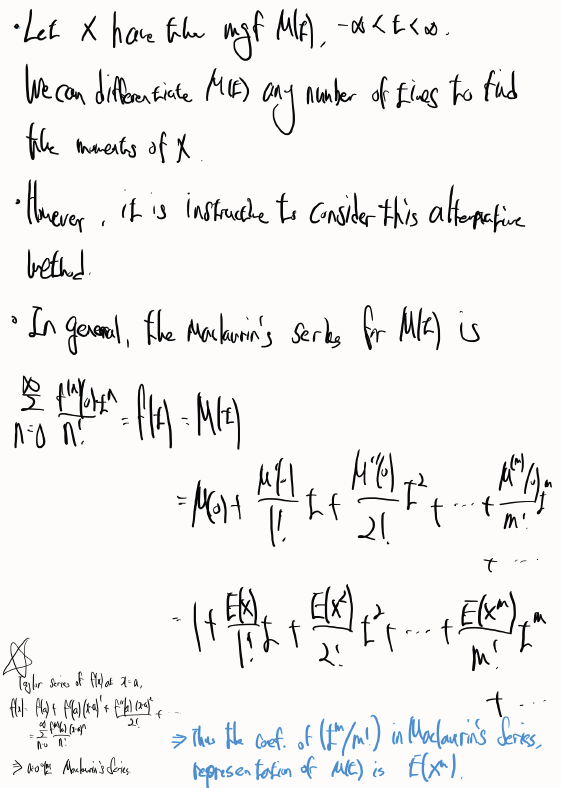 · Let X have the mgf M(t), -∞ < t < ∞.
We can differentiate M(t) any number of times to find
the moments of X
· However, it is instructive to consider this alternative
method.
· In general, the Maclaurin's series for M(t) is
∑_{n=0}^{∞} f^{(n)}(0)·t^n / n! = f(t) = M(t)
= M(0) + M'(·)/1! t + M''(0)/2! t^2 + ··· + M^{(m)}(0)/m! t^m
+ ···
= 1 + E(X)/1! t + E(X^2)/2! t^2 + ··· + E(X^m)/m! t^m
+ ···
☆
Taylor series of f(x) at x=a,
f(x) = f(a) + f'(a)(x-a)^1 + f''(a)(x-a)^2/2! + ···
= ∑_{n=0}^{∞} f^{(n)}(a)(x-a)^n / n!
⇒ a=0 Maclaurin's Series
⇒ Thus the coef. of (t^m/m!) in Maclaurin's Series,
representation of M(t) is E(X^m).